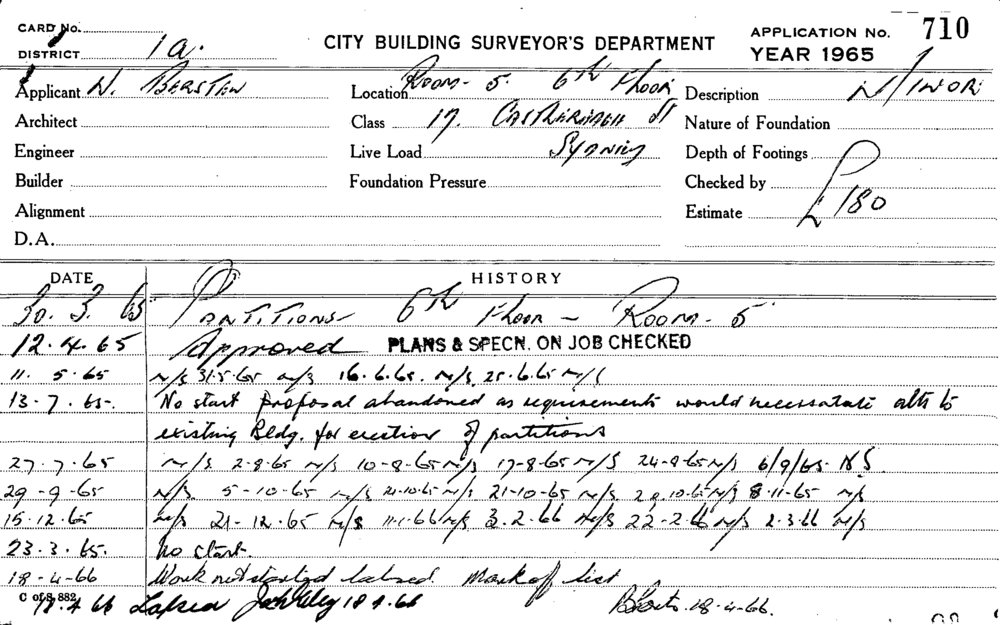 CARD No.
DISTRICT 1a.
CITY BUILDING SURVEYOR'S DEPARTMENT
APPLICATION No. 710
YEAR 1965
Applicant N. BERSTEN
Architect
Engineer
Builder
Alignment
D.A.
Location ROOM - 5. 6th FLOOR
Class 17. CASTLEREAGH ST
Live Load SYDNEY
Foundation Pressure
Description MINOR
Nature of Foundation
Depth of Footings
Checked by
Estimate £180
DATE HISTORY
30. 3. 65 PARTITIONS - 6th Floor - ROOM - 5
12.4.65 Approved PLANS & SPECN. ON JOB CHECKED
11. 5.65 n/s 31.5.65 n/s 16.6.65. n/s, 25.6.65 n/s
13-7.65-. No start proposal abandoned as requirements would necessatate alts to
existing Bldg. for erection of partitions
27.7.65 n/s. 2-8-65 n/s 10-8-65 n/s 17-8-65 n/s 24-8-65 n/s 6/9/65. NS.
29-9-65 n/s. 5-10-65 n/s 21-10-65 n/s 8.11-65 n/s
15.12.65 n/s 21-12.65 n/s 11.1.66 n/s 3.2.66 n/s 22-2.66 n/s 2.3.66 n/s
23.3.65. No start.
18-4-66 Work not started lapsed. Mark off list
C of S 882
18.4.66 Lapsed 18.4.66 18-4-66.